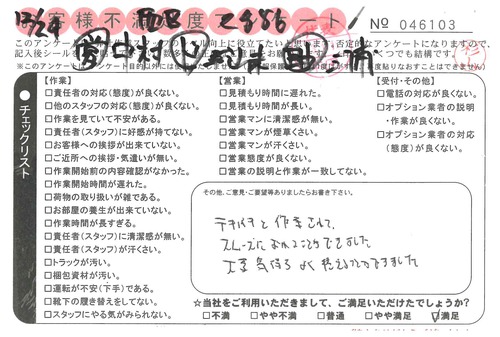 様不満度 ート
№ 046103
※このアンケート
チェックリスト
【作業】
□責任者の対応(態度)が良くない。
□他のスタッフの対応(態度)が良くない。
□作業を見ていて不安がある。
□責任者(スタッフ)に好感が持てない。
□お客様への挨拶が出来ていない。
□ご近所への挨拶・気遣いが無い。
□作業開始前の内容確認がなかった。
□作業開始時間が遅れた。
□荷物の取り扱いが雑である。
□お部屋の養生が出来ていない。
□作業時間が長すぎる。
□責任者(スタッフ)に清潔感が無い。
□責任者(スタッフ)が汗くさい。
□トラックが汚い。
□梱包資材が汚い。
□運転が不安(下手)である。
□靴下の履き替えをしてない。
□スタッフにやる気がみられない。
【営業】
□見積もり時間に遅れた。
□見積もり時間が長い。
□営業マンに清潔感が無い。
□営業マンが煙草くさい。
□営業マンが汗くさい。
□営業態度が良くない。
□営業の説明と作業が一致してない。
【受付・その他】
□電話の対応が良くない。
□オプション業者の説明
・作業が良くない。
□オプション業者の対応
(態度)が良くない。
その他、ご意見・ご要望等ありましたらお書き下さい。
テキパキと作業されて、
スムーズに おわることができました
☆当社をご利用いただきまして、ご満足いただけたでしょうか?
□不満 □やや不満 □普通 □やや満足 ☑満足